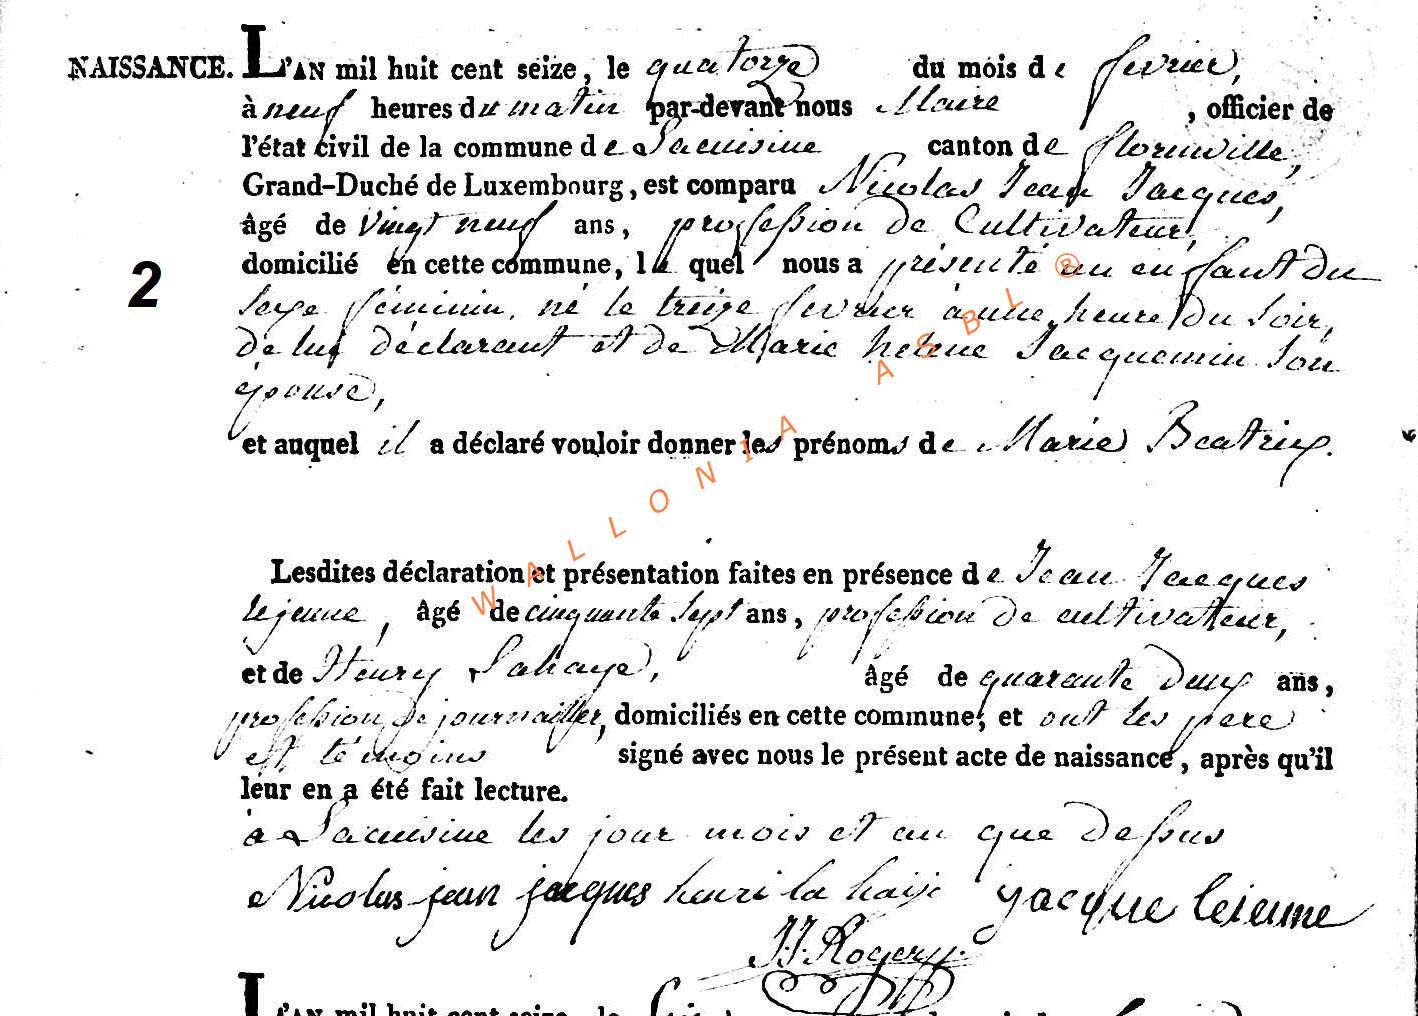 NAISSANCE. L'AN mil huit cent seize, le quatorze du mois de fevrier,
à neuf heures du matin par-devant nous Maire , officier de
l'état civil de la commune de Lacuisine canton de florenville,
Grand-Duché de Luxembourg, est comparu Nicolas Jean Jacques,
âgé de vingt neuf ans, profession de Cultivateur,
domicilié en cette commune, le quel nous a présenté un enfant du
2
sexe féminin, né le treize fevrier à une heure du soir,
de lui déclarant et de Marie helene Jacquemin son
épouse,
et auquel il a déclaré vouloir donner les prénoms de Marie Beatrix.
Lesdites déclaration et présentation faites en présence de Jean Jacques
lejeune, âgé de cinquante sept ans, profession de cultivateur,
et de Henry Lahaye, âgé de quarante deux ans,
profession de journailler, domiciliés en cette commune; et ont les pere
et témoins signé avec nous le présent acte de naissance, après qu'il
leur en a été fait lecture.
à Lacuisine les jour mois et an que dessus
Nicolas jean jacques henri la haije jacque leieune
J.J. Rogery
L'AN mil huit cent seize, le
WALLONIA ASBL®